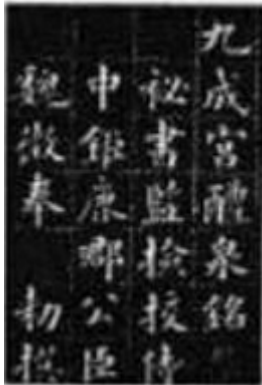 九成宮醴泉銘
秘書監檢挍侍
中鉅鹿郡公臣
魏徵奉 勑撰